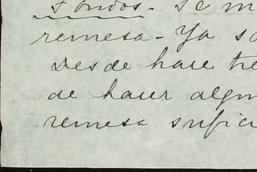 Fondos. Se m
remesa - Ya so
Desde hace tre
de hacer algun
remesa sufici